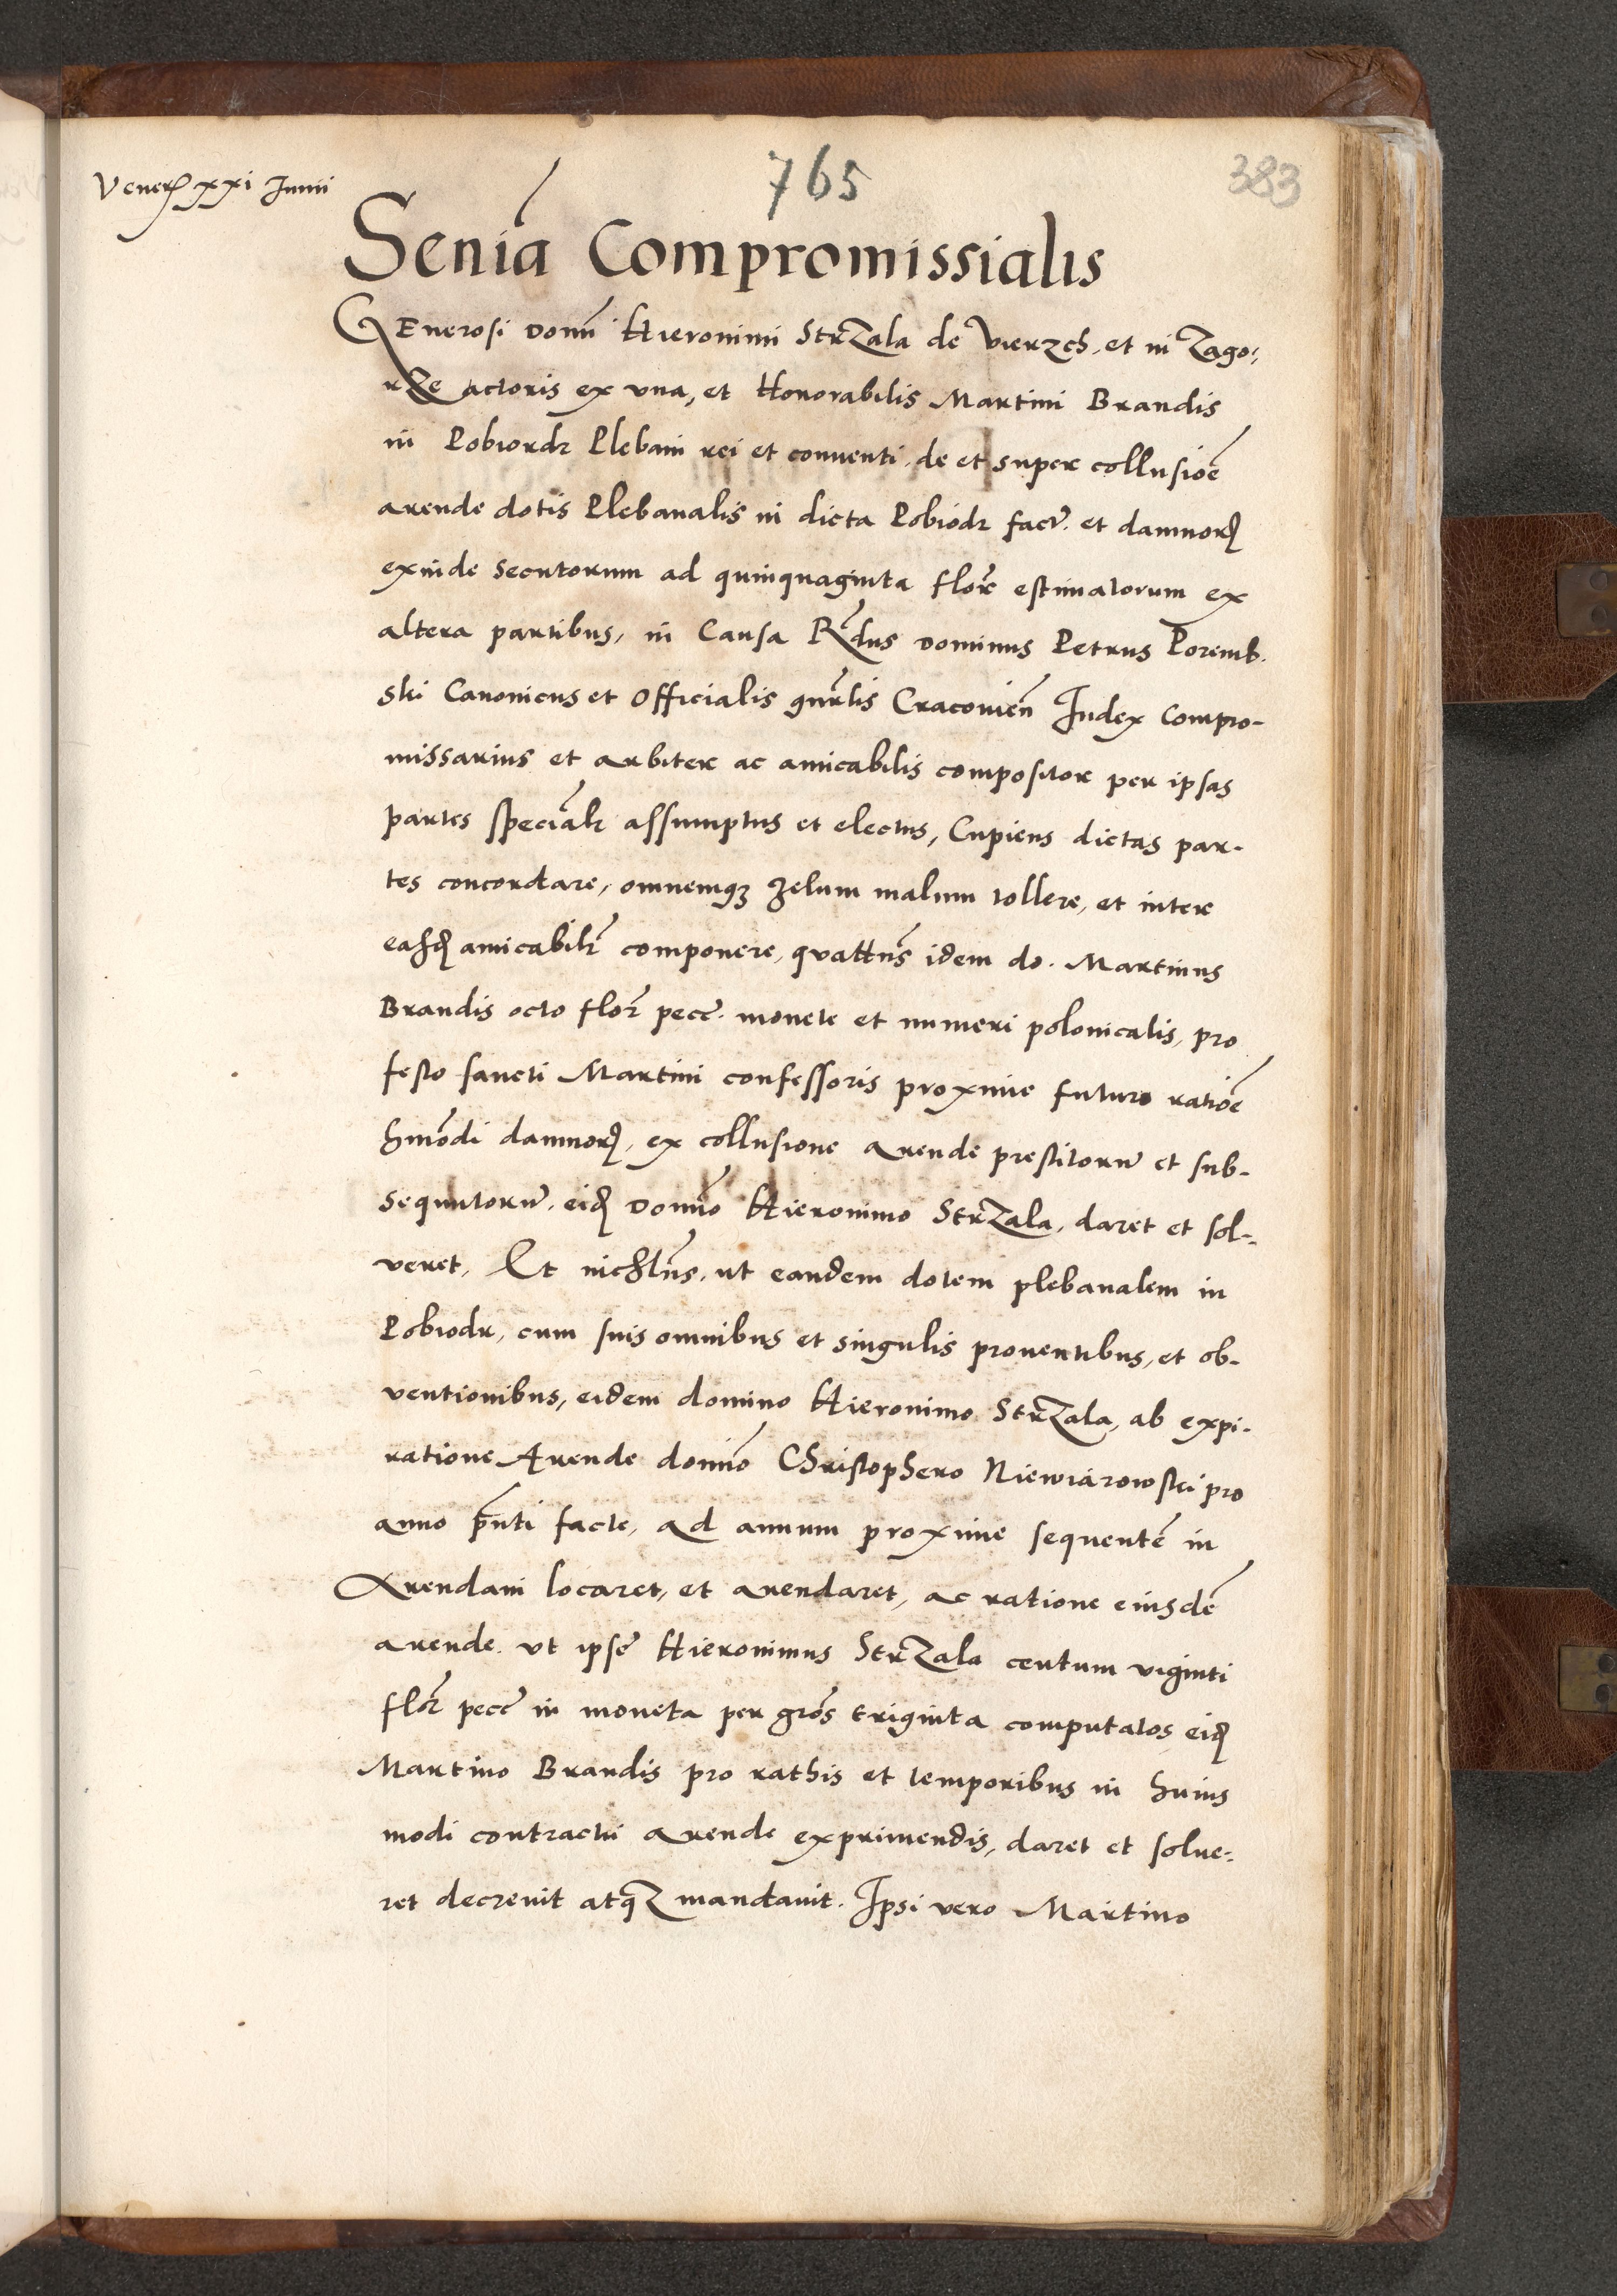 765
383
Veneris xxi Junii
Senia Compromissialis
GEnerosi Domi Hieronimi StrZala de Vierzch, et in Zago:
rZe actoris ex vna, et Honorabilis Martini Brandis
in Pobiordr Plebani rei et conuenti, de et super collusioe
arende dotis Plebanalis in dicta Pobiodr fact. et damnor
exinde secutorum ad quinquaginta flor estimatorum ex
altera partibus, in Causa Rdus Dominus Petrus Poremb.
ski Canonicus et Officialis gnrlis Cracouien Judex Compro-
missarius et arbiter ac amicabilis compositor per ipsas
partes specialr assumptus et electus, Cupiens dictas par-
tes concordare, omnemqz zelum malum tollere, et inter
easd amicabilr componere, quattns idem do. Martinus
Brandis octo flor pecc. monete et numeri polonicalis, pro
festo sancti Martini confessoris proxime futuro ratioe
hmodi damnor, ex collusione arende prestitoru et sub-
sequutoru, eid Domio Hieronimo StrZala, daret et sol-
ueret, Et nichlns, ut eandem dotem plebanalem in
Pobiodr, cum suis omnibus et singulis prouentibus, et ob-
uentionibus, eidem domino Hieronimo StrZala, ab expi-
ratione Arende domio Christophero Niewiarowski pro
anno pnti facte, ad annum proxime sequente in
Arendam locaret, et arendaret, ac ratione eiusde
arende. vt ipse Hieronimus StrZala centum viginti
flor pecc in moneta per gros triginta computatos eid
Martino Brandis pro rathis et temporibus in huius
modi contractu arende exprimendis, daret et solue-
ret decreuit atqZ mandauit. Ipsi vero Martino